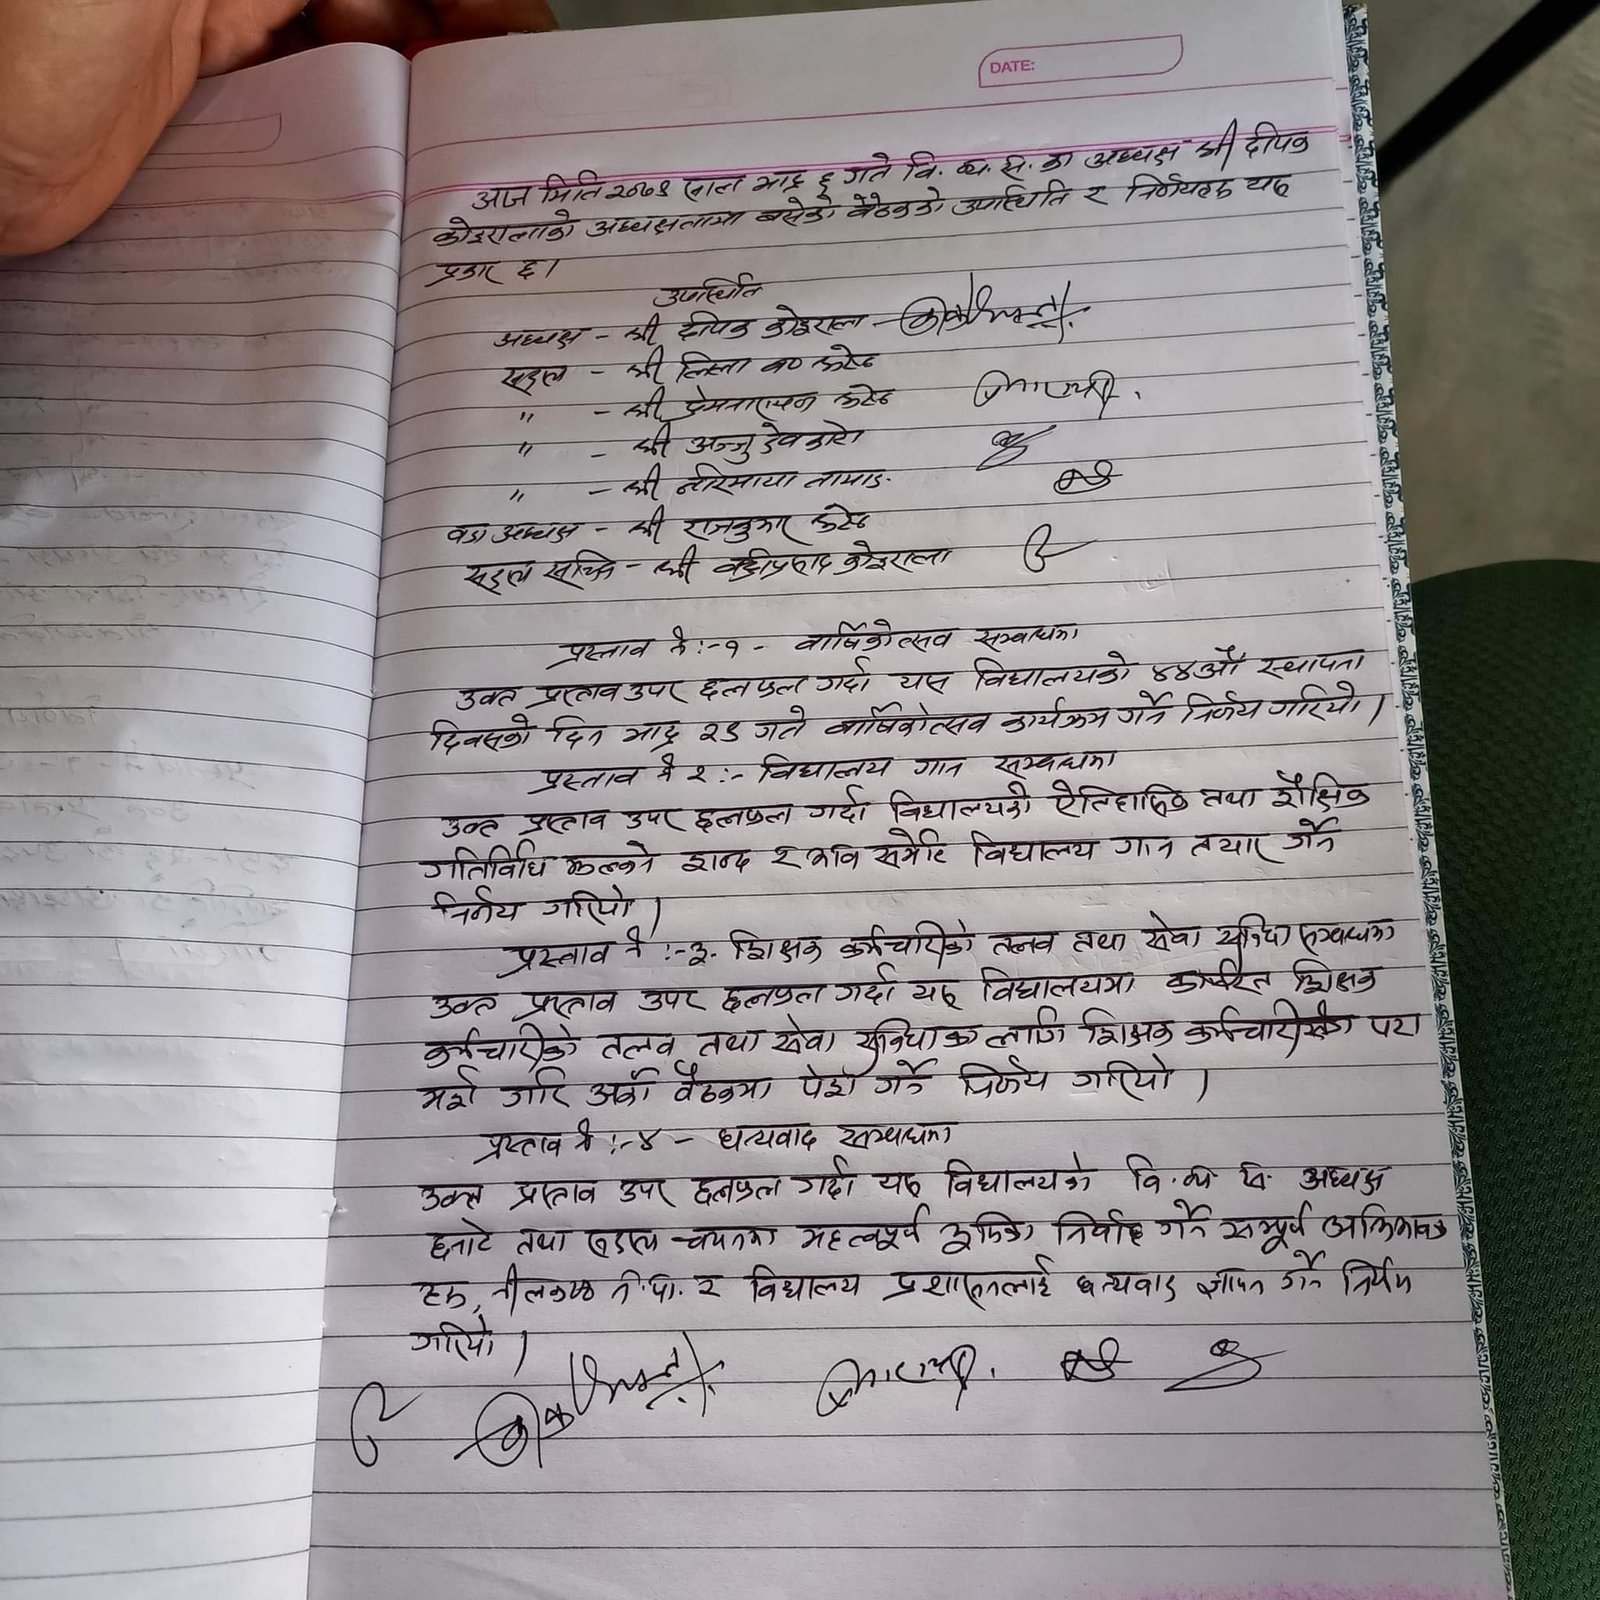 DATE:
आज मिति २०७९ साल भाद्र ६ गते वि. व्य. स. का अध्यक्ष श्री दीपक
कोइरालाको अध्यक्षतामा बसेको बैठकको उपस्थिति र निर्णयहरु यस
प्रकार छ।
उपस्थिति
अध्यक्ष - श्री दीपक कोइराला -
सदस्य - श्री लिला ब० कटेल
" - श्री प्रेमनारायण कटेल
" - श्री अन्जु देवकोटा
" - श्री नरिमाया तामाङ
वडा अध्यक्ष - श्री राजकुमार कटेल
सदस्य सचिव - श्री बद्रीप्रसाद कोइराला
प्रस्ताव नं :- १ - वार्षिकोत्सव सम्बन्धमा
उक्त प्रस्ताव उपर छलफल गर्दा यस विद्यालयको ४४औं स्थापना
दिवसको दिन भाद्र २९ गते वार्षिकोत्सव कार्यक्रम गर्ने निर्णय गरियो।
प्रस्ताव नं २ :- विद्यालय गान सम्बन्धमा
उक्त प्रस्ताव उपर छलफल गर्दा विद्यालयको ऐतिहासिक तथा शैक्षिक
गतिविधि झल्कने शब्द र भाव समेटि विद्यालय गान तयार गर्ने
निर्णय गरियो।
प्रस्ताव नं :- ३. शिक्षक कर्मचारीको तलब तथा सेवा सुविधा सम्बन्धमा
उक्त प्रस्ताव उपर छलफल गर्दा यस विद्यालयमा कार्यरत शिक्षक
कर्मचारीको तलब तथा सेवा सुविधाका लागि शिक्षक कर्मचारीसँग परा
मर्श गरि अर्को बैठकमा पेश गर्ने निर्णय गरियो।
प्रस्ताव नं :- ४ - धन्यवाद सम्बन्धमा
उक्त प्रस्ताव उपर छलफल गर्दा यस विद्यालयको वि. व्य. स. अध्यक्ष
छनोट तथा सदस्य चयनमा महत्वपूर्ण भूमिका निर्वाह गर्ने सम्पूर्ण अभिभावक
हरु, नीलकण्ठ न. पा. र विद्यालय प्रशासनलाई धन्यवाद ज्ञापन गर्ने निर्णय
गरियो।